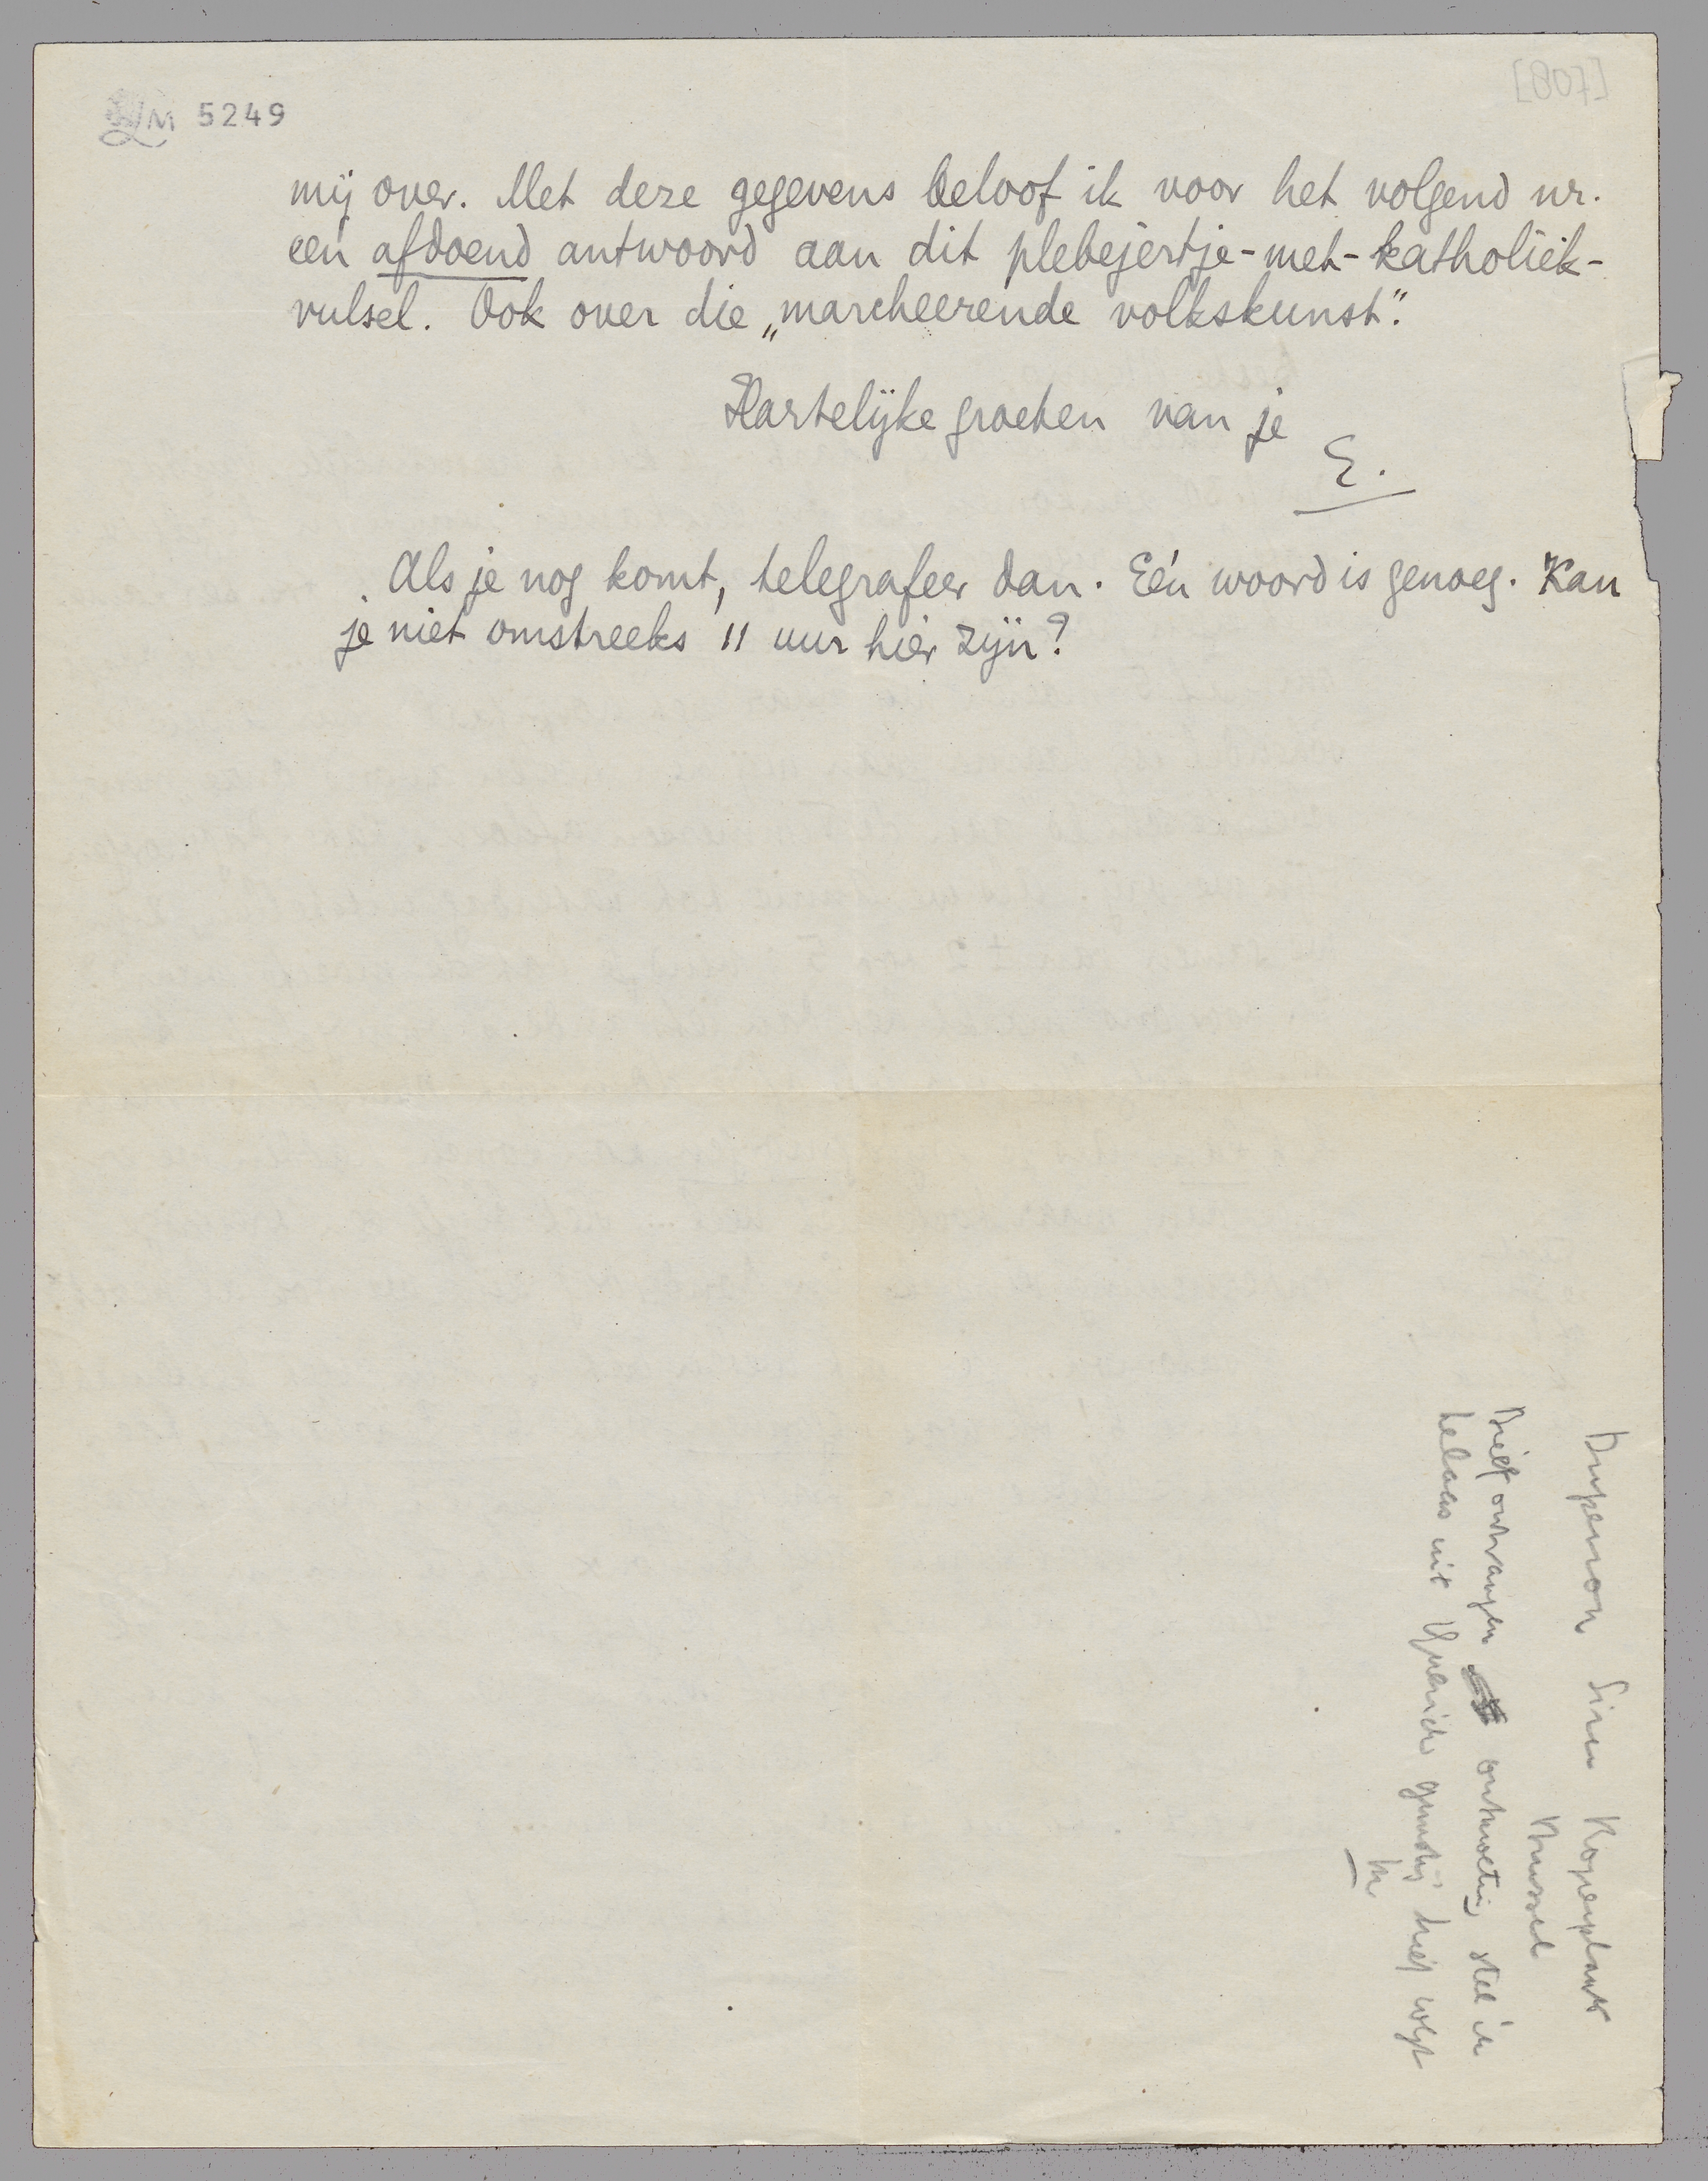 LM 5249
[807]
mij over. Met deze gegevens beloof ik voor het volgend nr.
een afdoend antwoord aan dit plebejertje-met-katholiek-
vulsel. Ook over die „marcheerende volkskunst".
Hartelijke groeten van je
E.
Als je nog komt, telegrafeer dan. Eén woord is genoeg. Kan
je niet omstreeks 11 uur hier zijn?
Duperron Sirn Kopenplaats
Brussel
Brief ontvangen ontmoeting stel ik
helaas uit Querido gunstig brief volgt